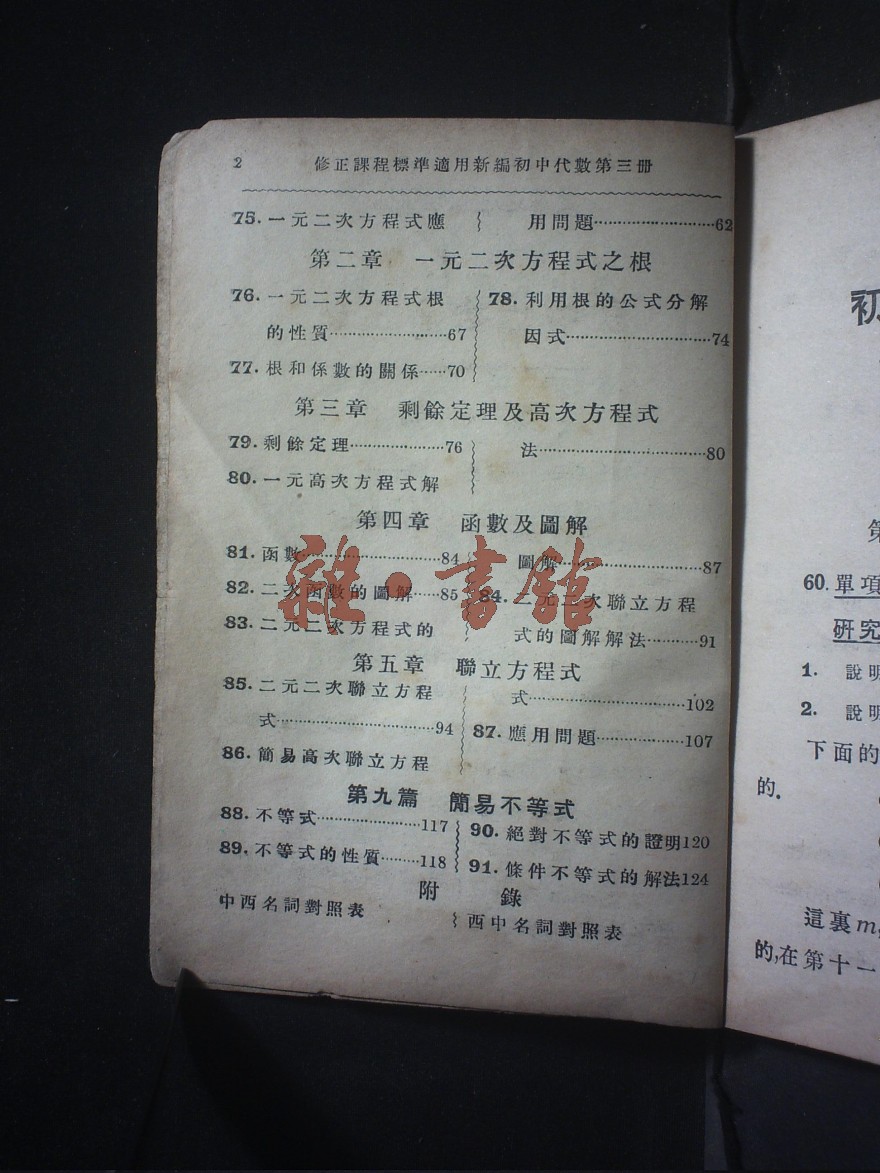 2 修正課程標準適用新編初中代數第三册
75. 一元二次方程式應
用問題……………………62
第二章 一元二次方程式之根
76. 一元二次方程式根
的性質……………………67
77. 根和係數的關係……70
78. 利用根的公式分解
因式…………………………74
第三章 剩餘定理及高次方程式
79. 剩餘定理………………76
80. 一元高次方程式解
法……………………………80
第四章 函數及圖解
81. 函數………………………84
82. 二次函數的圖解……85
83. 二元二次方程式的
圖解…………………………87
84. 二元二次聯立方程
式的圖解解法…………91
第五章 聯立方程式
85. 二元二次聯立方程
式……………………………94
86. 簡易高次聯立方程
式……………………………102
87. 應用問題………………107
第九篇 簡易不等式
88. 不等式…………………117
89. 不等式的性質………118
90. 絕對不等式的證明120
91. 條件不等式的解法124
附 錄
中西名詞對照表
西中名詞對照表
雜·書館
初
第
60. 單項
研究
1. 說明
2. 說明
下面的
的.
這裏m,
的,在第十一